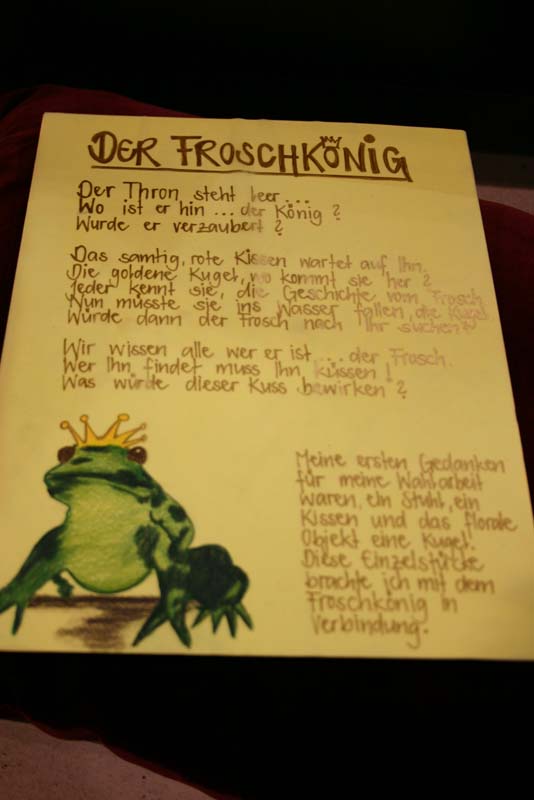 DER FROSCHKÖNIG
Der Thron steht leer...
Wo ist er hin ... der König ?
Wurde er verzaubert ?
Das samtig, rote Kissen wartet auf Ihn.
Die goldene Kugel, wo kommt sie her ?
Jeder kennt sie, die Geschichte vom Frosch.
Nun müsste sie ins Wasser fallen, die Kugel.
Würde dann der Frosch nach Ihr suchen ?
Wir wissen alle wer er ist ... der Frosch.
Wer Ihn findet muss Ihn küssen !
Was würde dieser Kuss bewirken ?
Meine ersten Gedanken
für meine Wahlarbeit
waren, ein Stuhl, ein
Kissen und das florale
Objekt eine Kugel.
Diese Einzelstücke
brachte ich mit dem
Froschkönig in
Verbindung.